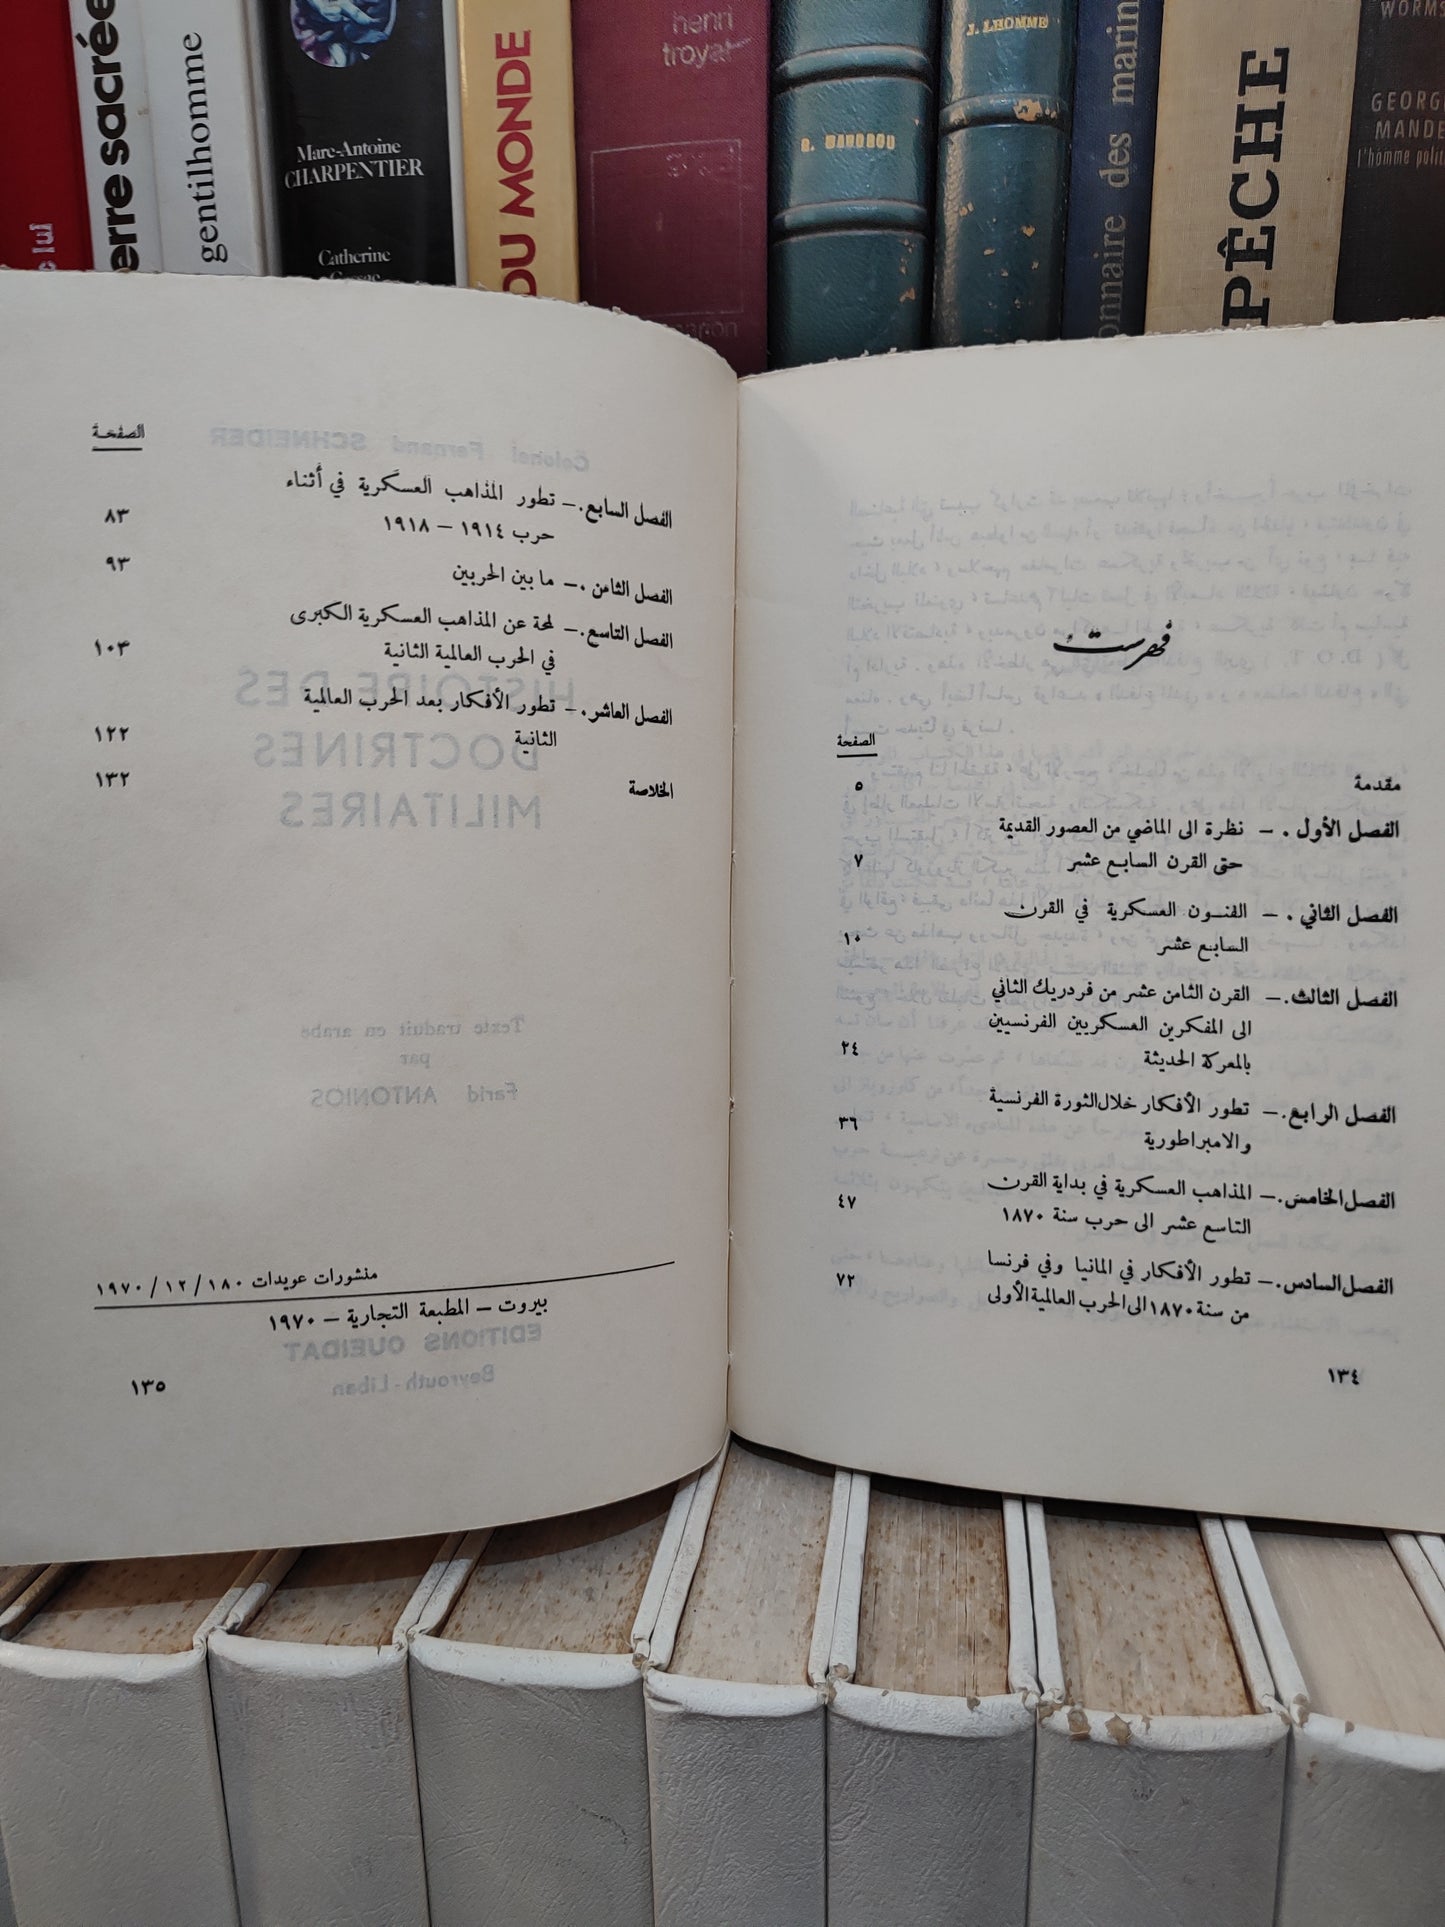 erre sacrée
gentilhomme
Marc-Antoine
CHARPENTIER
Catherine
DU MONDE
henri
troyat
J. LHOMME
des marin
PÊCHE
WORMS
GEORG
MANDE
l'homme polit
فهرست
الصفحة
مقدمة ٥
الفصل الأول . — نظرة الى الماضي من العصور القديمة
حتى القرن السابع عشر ٧
الفصل الثاني . — الفنون العسكرية في القرن
السابع عشر ١٠
الفصل الثالث. — القرن الثامن عشر من فردريك الثاني
الى المفكرين العسكريين الفرنسيين
بالمعركة الحديثة ٢٤
الفصل الرابع. — تطور الأفكار خلال الثورة الفرنسية
والامبراطورية ٣٦
الفصل الخامس. — المذاهب العسكرية في بداية القرن
التاسع عشر الى حرب سنة ١٨٧٠ ٤٧
الفصل السادس. — تطور الأفكار في المانيا وفي فرنسا
من سنة ١٨٧٠ الى الحرب العالمية الأولى ٧٢
١٣٤
الصفحة
الفصل السابع. — تطور المذاهب العسكرية في أثناء
حرب ١٩١٤ — ١٩١٨ ٨٣
الفصل الثامن . — ما بين الحربين ٩٣
الفصل التاسع. — لمحة عن المذاهب العسكرية الكبرى
في الحرب العالمية الثانية ١٠٣
الفصل العاشر. — تطور الأفكار بعد الحرب العالمية
الثانية ١٢٢
الخلاصة ١٣٢
منشورات عويدات ١٨٠ / ١٢ / ١٩٧٠
بيروت — المطبعة التجارية — ١٩٧٠
١٣٥
Colonel Fernand SCHNEIDER
HISTOIRE DES
DOCTRINES
MILITAIRES
Texte traduit en arabe
par
Farid ANTONIOS
EDITIONS OUEIDAT
Beyrouth - Liban